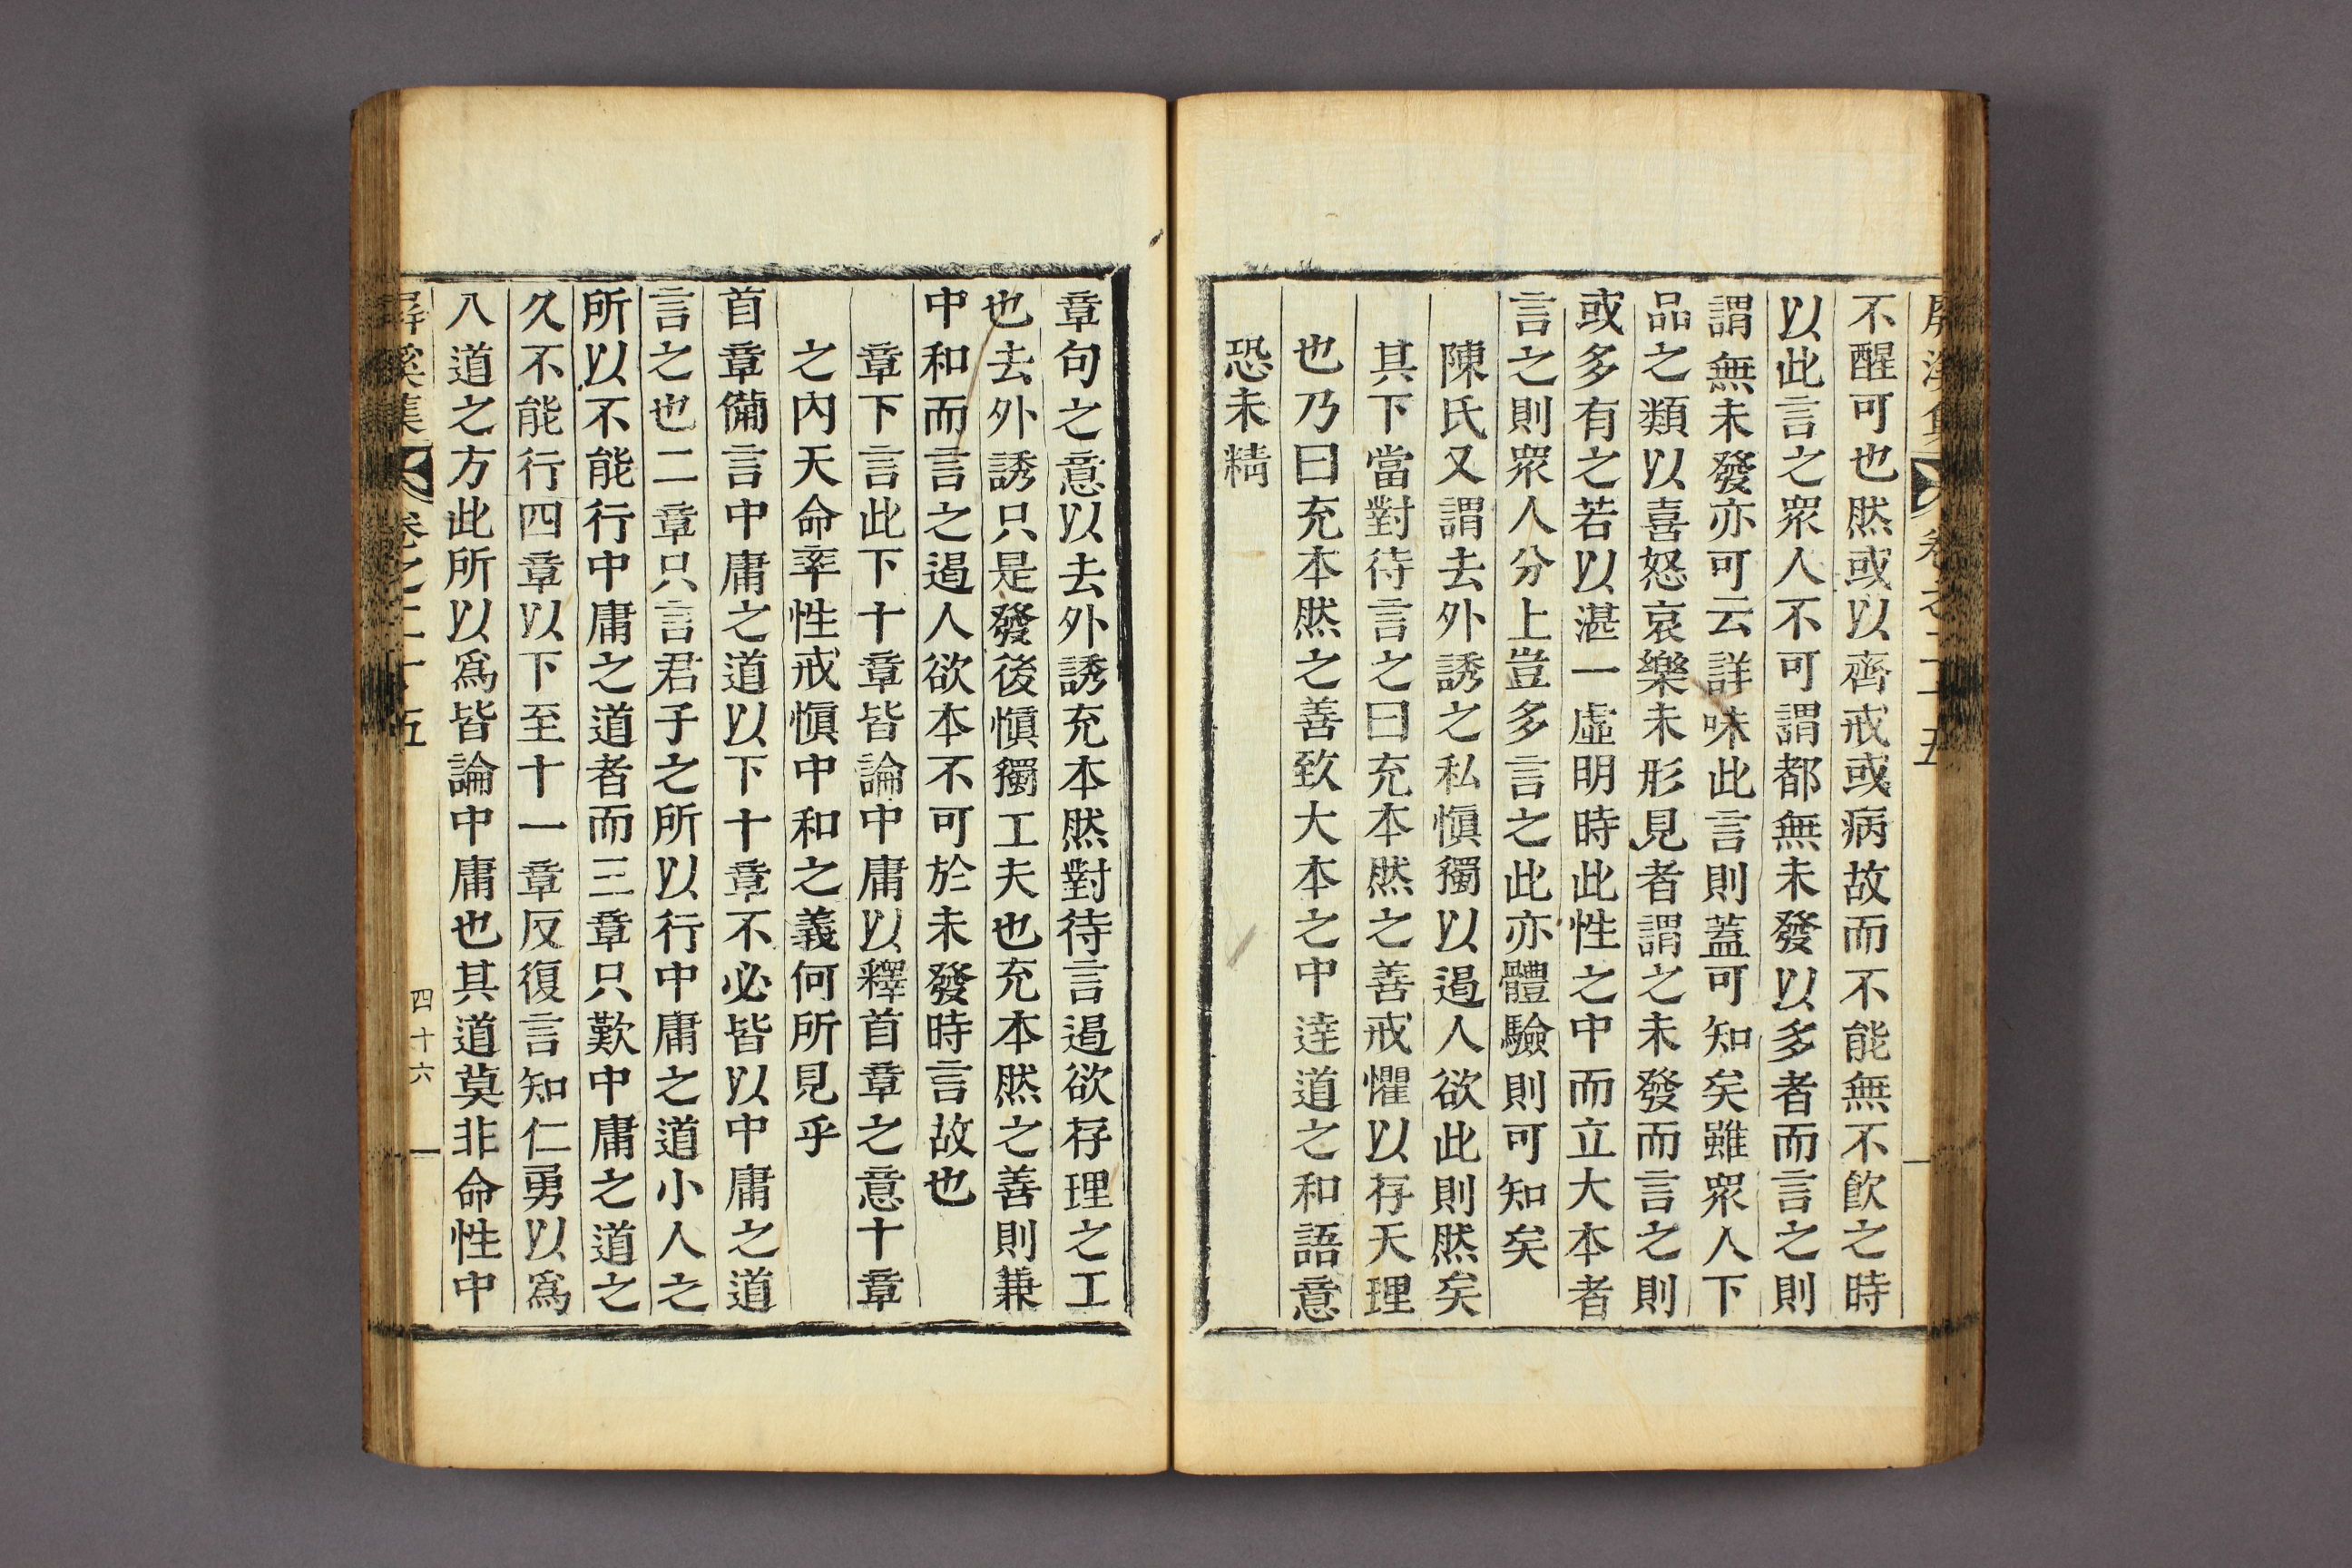 屏溪集 卷之二十五
不醒可也然或以齊戒或病故而不能無不飮之時
以此言之衆人不可謂都無未發以多者而言之則
謂無未發亦可云詳味此言則蓋可知矣雖衆人下
品之類以喜怒哀樂未形見者謂之未發而言之則
或多有之若以湛一虛明時此性之中而立大本者
言之則衆人分上豈多言之此亦體驗則可知矣
陳氏又謂去外誘之私愼獨以遏人欲此則然矣
其下當對待言之曰充本然之善戒懼以存天理
也乃曰充本然之善致大本之中達道之和語意
恐未精
章句之意以去外誘充本然對待言遏欲存理之工
也去外誘只是發後愼獨工夫也充本然之善則兼
中和而言之遏人欲本不可於未發時言故也
章下言此下十章皆論中庸以釋首章之意十章
之內天命率性戒愼中和之義何所見乎
首章備言中庸之道以下十章不必皆以中庸之道
言之也二章只言君子之所以行中庸之道小人之
所以不能行中庸之道者而三章只歎中庸之道之
久不能行四章以下至十一章反復言知仁勇以爲
入道之方此所以爲皆論中庸也其道莫非命性中
屏溪集 卷之二十五 四十六